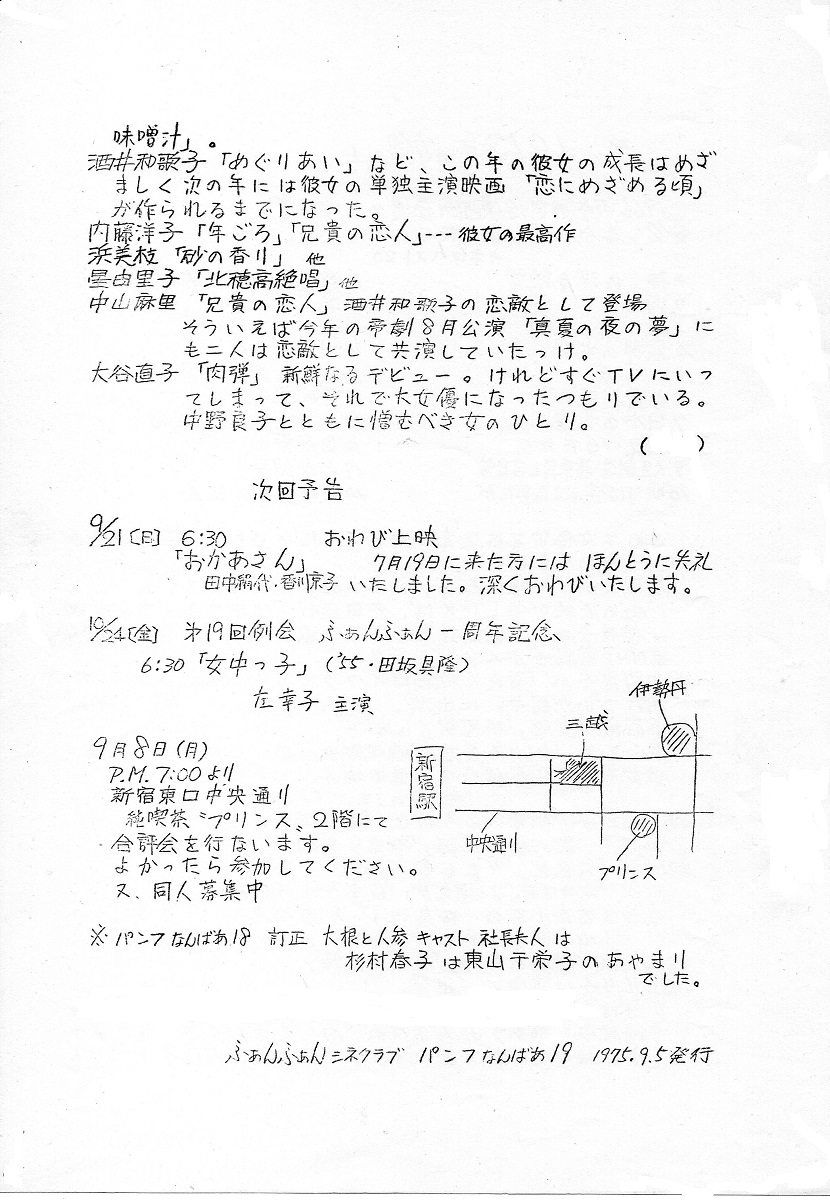 味噌汁」。
酒井和歌子「めぐりあい」など、この年の彼女の成長はめざ
ましく次の年には彼女の単独主演映画「恋にめざめる頃」
が作られるまでになった。
内藤洋子「年ごろ」「兄貴の恋人」---彼女の最高作
浜美枝「砂の香り」他
星由里子「北穂高絶唱」他
中山麻里「兄貴の恋人」酒井和歌子の恋敵として登場
そういえば今年の帝劇8月公演「真夏の夜の夢」に
も二人は恋敵として共演していたっけ。
大谷直子「肉弾」新鮮なるデビュー。けれどすぐTVにいっ
てしまって、それで大女優になったつもりでいる。
中野良子とともに憎むべき女のひとり。
( )
次回予告
9/21[日] 6:30 おわび上映
「おかあさん」 7月19日に来た方には ほんとうに失礼
田中絹代・香川京子 いたしました。深くおわびいたします。
10/24[金] 第19回例会 ふぁんふぁん一周年記念、
6:30「女中っ子」('55・田坂具隆)
左幸子 主演
伊勢丹
三越
新宿駅
中央通り
プリンス
9月8日(月)
P.M.7:00より
新宿東口中央通り
純喫茶〝プリンス〟2階にて
合評会を行ないます。
よかったら参加してください。
又、同人募集中
※ パンフなんばあ18 訂正 大根と人参 キャスト 社長夫人は
杉村春子は東山千栄子のあやまり
でした。
ふぁんふぁんシネクラブ パンフなんばあ19 1975.9.5発行